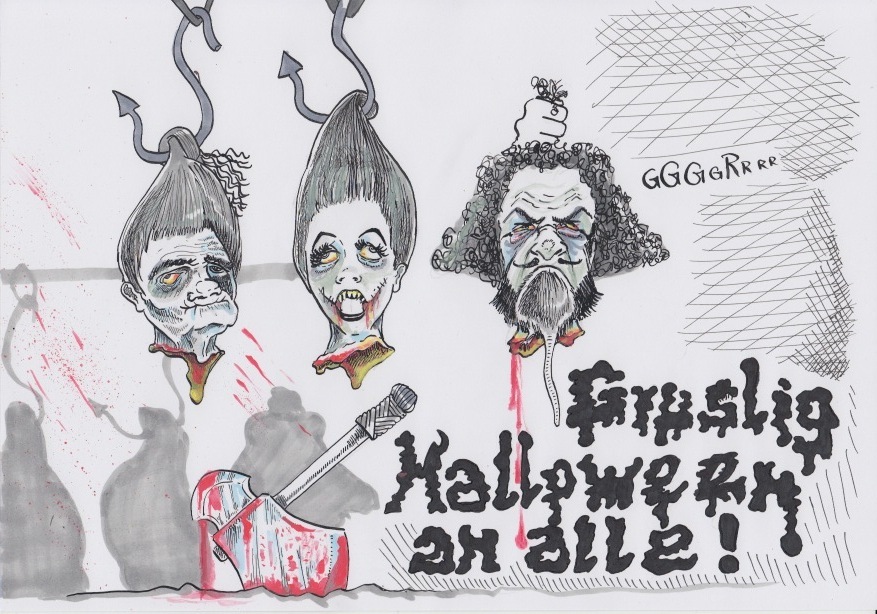 GGGGRRRR
Gruslig
Halloween
an alle!